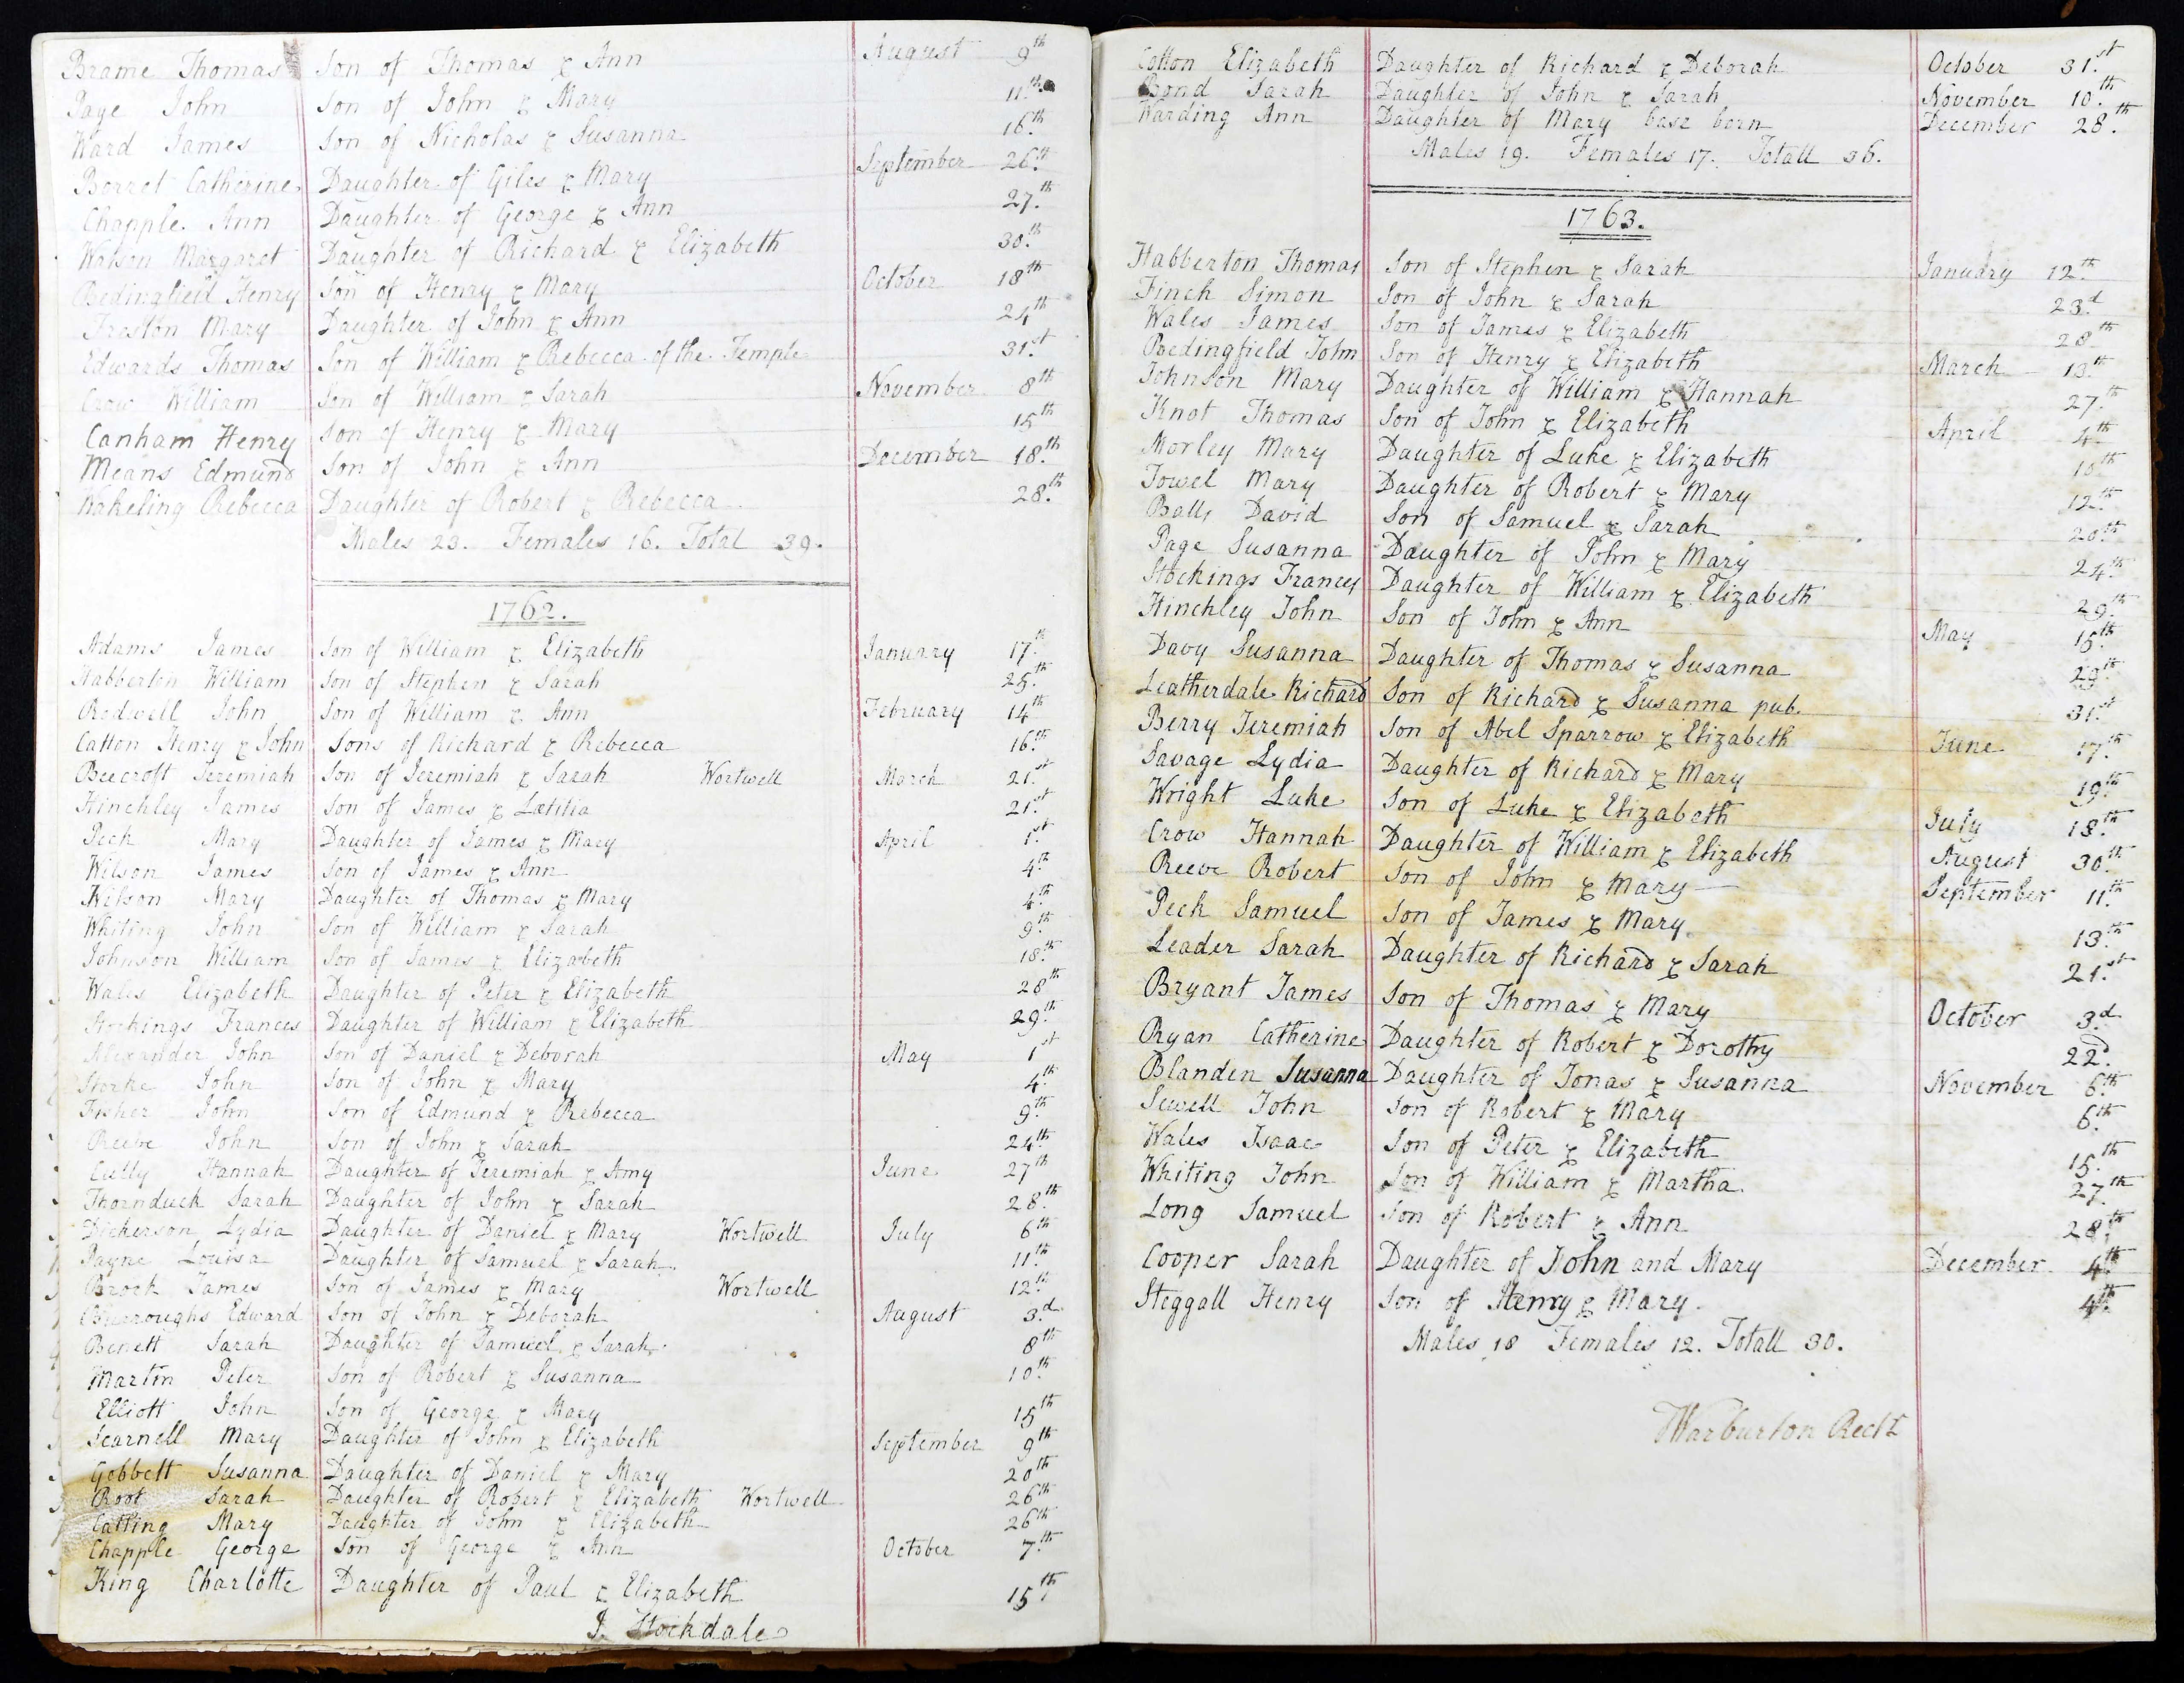 Brame Thomas Son of Thomas & Ann August 9th
Page John Son of John & Mary 11th
Ward James Son of Nicholas & Susanna 16th
Borret Catherine Daughter of Giles & Mary September 26th
Chapple Ann Daughter of George & Ann 27th
Watson Margaret Daughter of Richard & Elizabeth 30th
Bedingfield Henry Son of Henry & Mary October 18th
Freston Mary Daughter of John & Ann 24th
Edwards Thomas Son of William & Rebecca of the Temple 31st
Crow William Son of William & Sarah November 8th
Canham Henry Son of Henry & Mary 15th
Means Edmund Son of John & Ann December 18th
Wakeling Rebecca Daughter of Robert & Rebecca 28th
Males 23. Females 16. Total 39.
1762.
Adams James Son of William & Elizabeth January 17th
Habberton William Son of Stephen & Sarah 25th
Rodwell John Son of William & Ann February 14th
Catton Henry & John Sons of Richard & Rebecca 16th
Beecroft Jeremiah Son of Jeremiah & Sarah Wortwell March 21st
Hinchley James Son of James & Lætitia 21st
Peck Mary Daughter of James & Mary April 1st
Wilson James Son of James & Ann 4th
Wilson Mary Daughter of Thomas & Mary 4th
Whiting John Son of William & Sarah 9th
Johnson William Son of James & Elizabeth 18th
Wales Elizabeth Daughter of Peter & Elizabeth 28th
Stockings Frances Daughter of William & Elizabeth 29th
Alexander John Son of Daniel & Deborah May 1st
Storke John Son of John & Mary 4th
Fisher John Son of Edmund & Rebecca 9th
Reeve John Son of John & Sarah 24th
Cully Hannah Daughter of Jeremiah & Amy June 27th
Thornduck Sarah Daughter of John & Sarah 28th
Dickerson Lydia Daughter of Daniel & Mary Wortwell July 6th
Payne Louisa Daughter of Samuel & Sarah 11th
Brock James Son of James & Mary Wortwell 12th
Burroughs Edward Son of John & Deborah August 3d
Benett Sarah Daughter of Samuel & Sarah 8th
Martin Peter Son of Robert & Susanna 10th
Elliott John Son of George & Mary 15th
Scarnell Mary Daughter of John & Elizabeth September 9th
Gobbett Susanna Daughter of Daniel & Mary 20th
Root Sarah Daughter of Robert & Elizabeth Wortwell 26th
Catting Mary Daughter of John & Elizabeth 26th
Chapple George Son of George & Ann October 7th
King Charlotte Daughter of Paul & Elizabeth 15th
J. Stockdale
Cotton Elizabeth Daughter of Richard & Deborah October 31st
Bond Sarah Daughter of John & Sarah November 10th
Warding Ann Daughter of Mary base born December 28th
Males 19. Females 17. Totall 36.
1763.
Habberton Thomas Son of Stephen & Sarah January 12th
Finch Simon Son of John & Sarah 23d
Wales James Son of James & Elizabeth 28th
Bedingfield John Son of Henry & Elizabeth March 13th
Johnson Mary Daughter of William & Hannah 27th
Knot Thomas Son of John & Elizabeth April 4th
Morley Mary Daughter of Luke & Elizabeth 10th
Jowel Mary Daughter of Robert & Mary 12th
Balls David Son of Samuel & Sarah 20th
Page Susanna Daughter of John & Mary 24th
Stockings Frances Daughter of William & Elizabeth 29th
Hinchley John Son of John & Ann May 15th
Davy Susanna Daughter of Thomas & Susanna 29th
Leatherdale Richard Son of Richard & Susanna pub. 31st
Berry Jeremiah Son of Abel Sparrow & Elizabeth June 17th
Savage Lydia Daughter of Richard & Mary 19th
Wright Luke Son of Luke & Elizabeth July 18th
Crow Hannah Daughter of William & Elizabeth August 30th
Reeve Robert Son of John & Mary September 11th
Peck Samuel Son of James & Mary 13th
Leader Sarah Daughter of Richard & Sarah 21st
Bryant James Son of Thomas & Mary October 3d
Ryan Catherine Daughter of Robert & Dorothy 22d
Blanden Susanna Daughter of Jonas & Susanna November 6th
Sewell John Son of Robert & Mary 6th
Wales Isaac Son of Peter & Elizabeth 15th
Whiting John Son of William & Martha 27th
Long Samuel Son of Robert & Ann 28th
Cooper Sarah Daughter of John and Mary December 4th
Steggall Henry Son of Henry & Mary. 4th
Males 18 Females 12. Totall 30.
Warburton Rectr